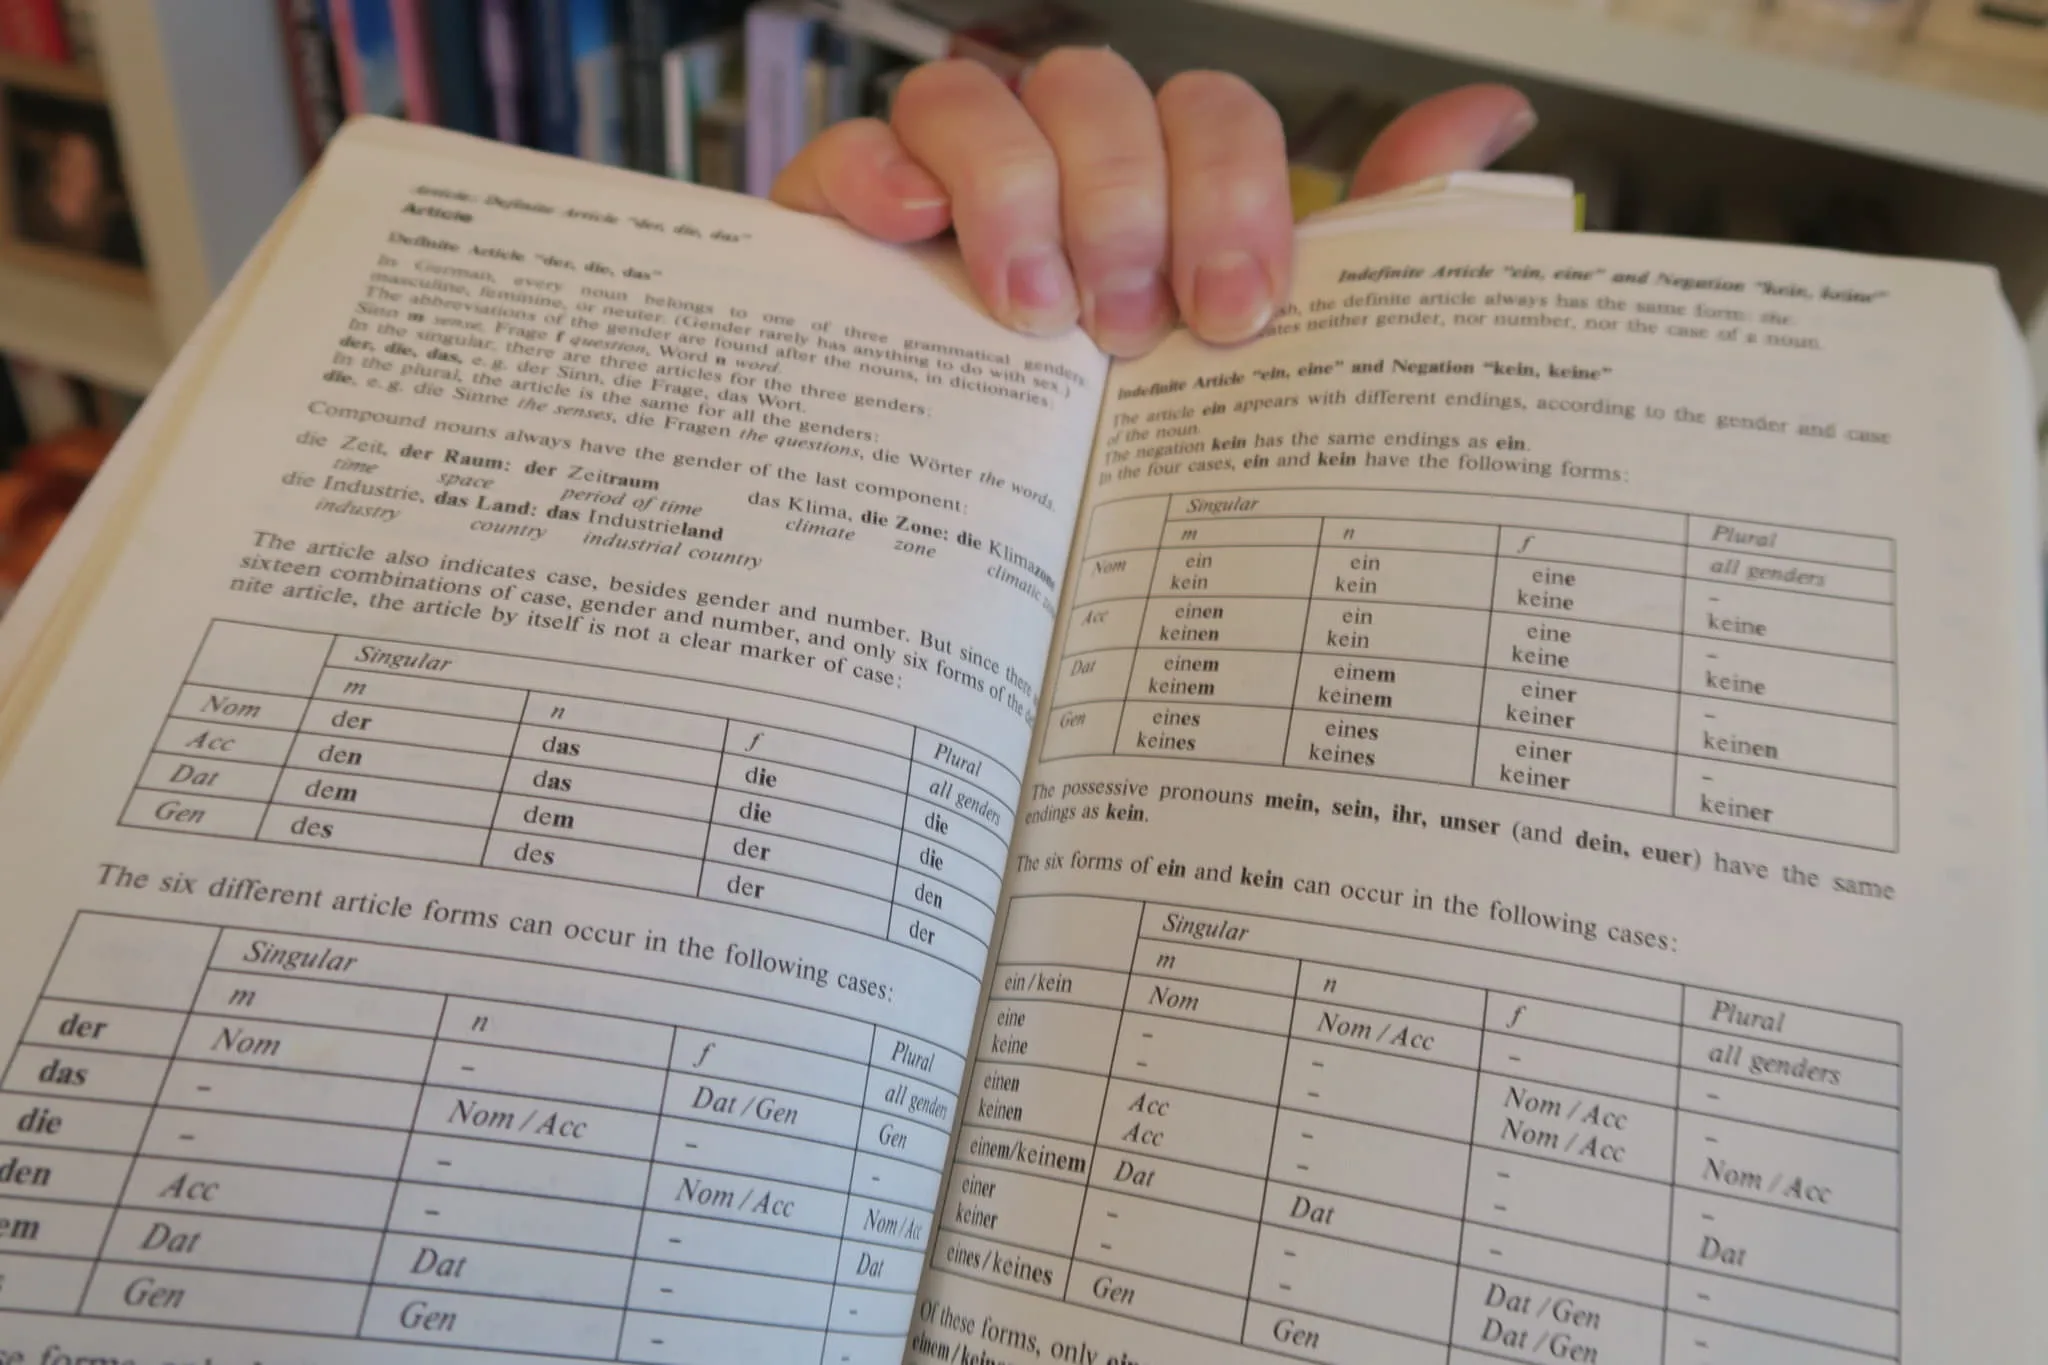 Article: Definite Article "der, die, das"
Article
Definite Article "der, die, das"
In German, every noun belongs to one of three grammatical genders:
masculine, feminine, or neuter. (Gender rarely has anything to do with sex.)
The abbreviations of the gender are found after the nouns, in dictionaries:
Sinn m sense, Frage f question, Word n word.
In the singular, there are three articles for the three genders:
der, die, das, e. g. der Sinn, die Frage, das Wort.
In the plural, the article is the same for all the genders:
die, e. g. die Sinne the senses, die Fragen the questions, die Wörter the words.
Compound nouns always have the gender of the last component:
die Zeit, der Raum: der Zeitraum das Klima, die Zone: die Klimazone
time space period of time climate zone climatic
die Industrie, das Land: das Industrieland
industry country industrial country
The article also indicates case, besides gender and number. But since there
sixteen combinations of case, gender and number, and only six forms of the
nite article, the article by itself is not a clear marker of case:
Singular Plural
m n f all genders
Nom der das die die
Acc den das die die
Dat dem dem der den
Gen des des der der
The six different article forms can occur in the following cases:
Singular Plural
m n f all genders
der Nom – Dat / Gen Gen
das – Nom / Acc – –
die – – Nom / Acc Nom / Acc
den Acc – – Dat
em Dat Dat – –
Gen Gen – –
Indefinite Article "ein, eine" and Negation "kein, keine"
sh, the definite article always has the same form: the.
ates neither gender, nor number, nor the case of a noun.
Indefinite Article "ein, eine" and Negation "kein, keine"
The article ein appears with different endings, according to the gender and case
of the noun.
The negation kein has the same endings as ein.
In the four cases, ein and kein have the following forms:
Singular Plural
m n f all genders
Nom ein ein eine –
kein kein keine keine
Acc einen ein eine –
keinen kein keine keine
Dat einem einem einer –
keinem keinem keiner keinen
Gen eines eines einer –
keines keines keiner keiner
The possessive pronouns mein, sein, ihr, unser (and dein, euer) have the same
endings as kein.
The six forms of ein and kein can occur in the following cases:
Singular Plural
m n f all genders
ein / kein Nom Nom / Acc – –
eine – – Nom / Acc –
keine – – Nom / Acc Nom / Acc
einen Acc – – –
keinen Acc – – Dat
einem/keinem Dat Dat – –
einer – – Dat / Gen –
keiner – – Dat / Gen
eines / keines Gen Gen
Of these forms, only